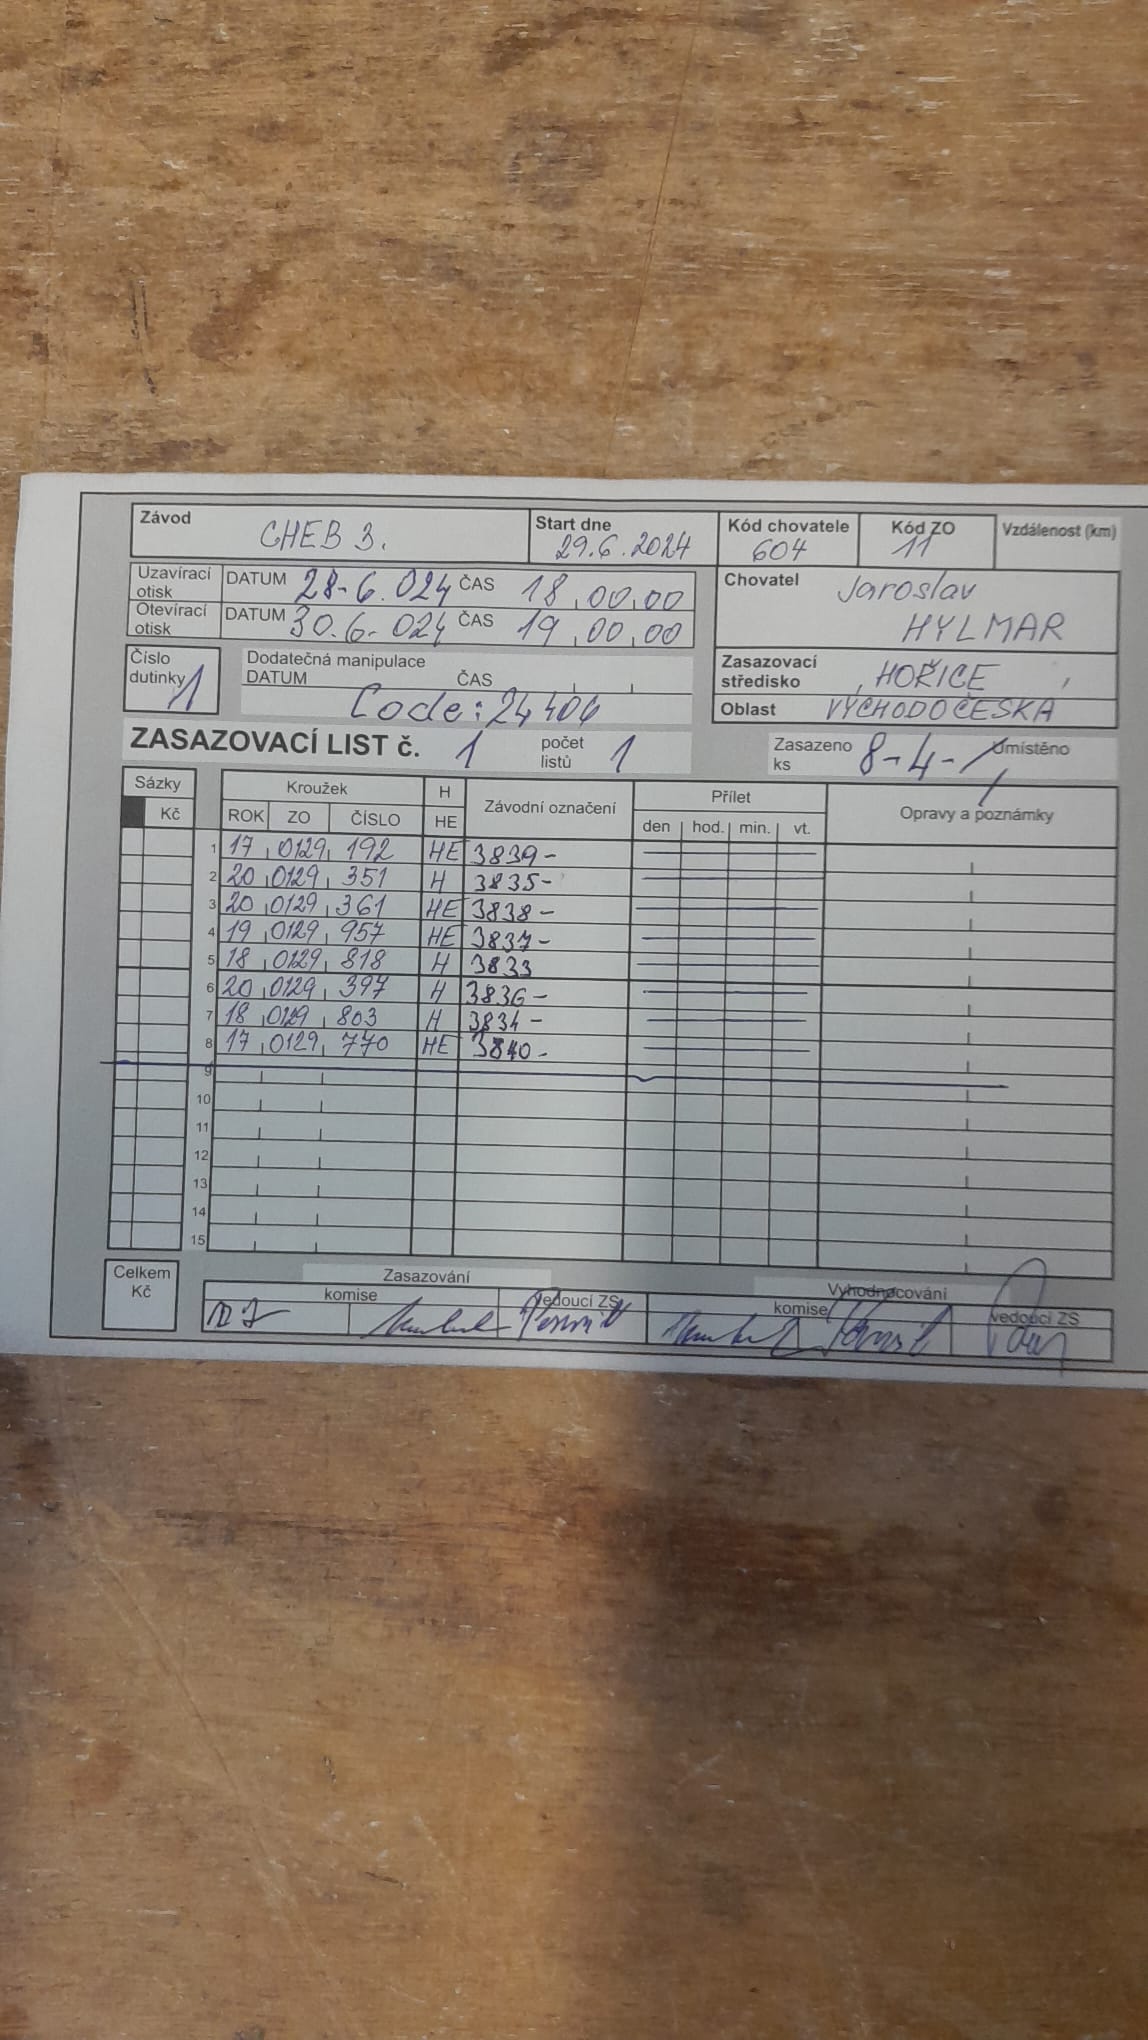 Závod CHEB 3. Start dne 29.6.2024 Kód chovatele 604 Kód ZO 11 Vzdálenost (km)
Uzavírací otisk DATUM 28-6.024 ČAS 18,00,00
Otevírací otisk DATUM 30.6-024 ČAS 19,00,00
Chovatel Jaroslav HYLMAR
Číslo dutinky 1 Dodatečná manipulace DATUM ČAS
Code: 24406
Zasazovací středisko HOŘICE
Oblast VÝCHODOČESKÁ
ZASAZOVACÍ LIST č. 1 počet listů 1 Zasazeno ks 8-4-/ Umístěno
Sázky Kroužek H Závodní označení Přílet Opravy a poznámky
Kč ROK ZO ČÍSLO HE den hod. min. vt.
1 17 0129 192 HE 3839-
2 20 0129 351 H 3835-
3 20 0129 361 HE 3838-
4 19 0129 957 HE 3837-
5 18 0129 818 H 3833
6 20 0129 397 H 3836-
7 18 0129 803 H 3834-
8 17 0129 770 HE 3840-
9
10
11
12
13
14
15
Celkem Kč Zasazování Vyhodnocování
komise vedoucí ZS komise vedoucí ZS